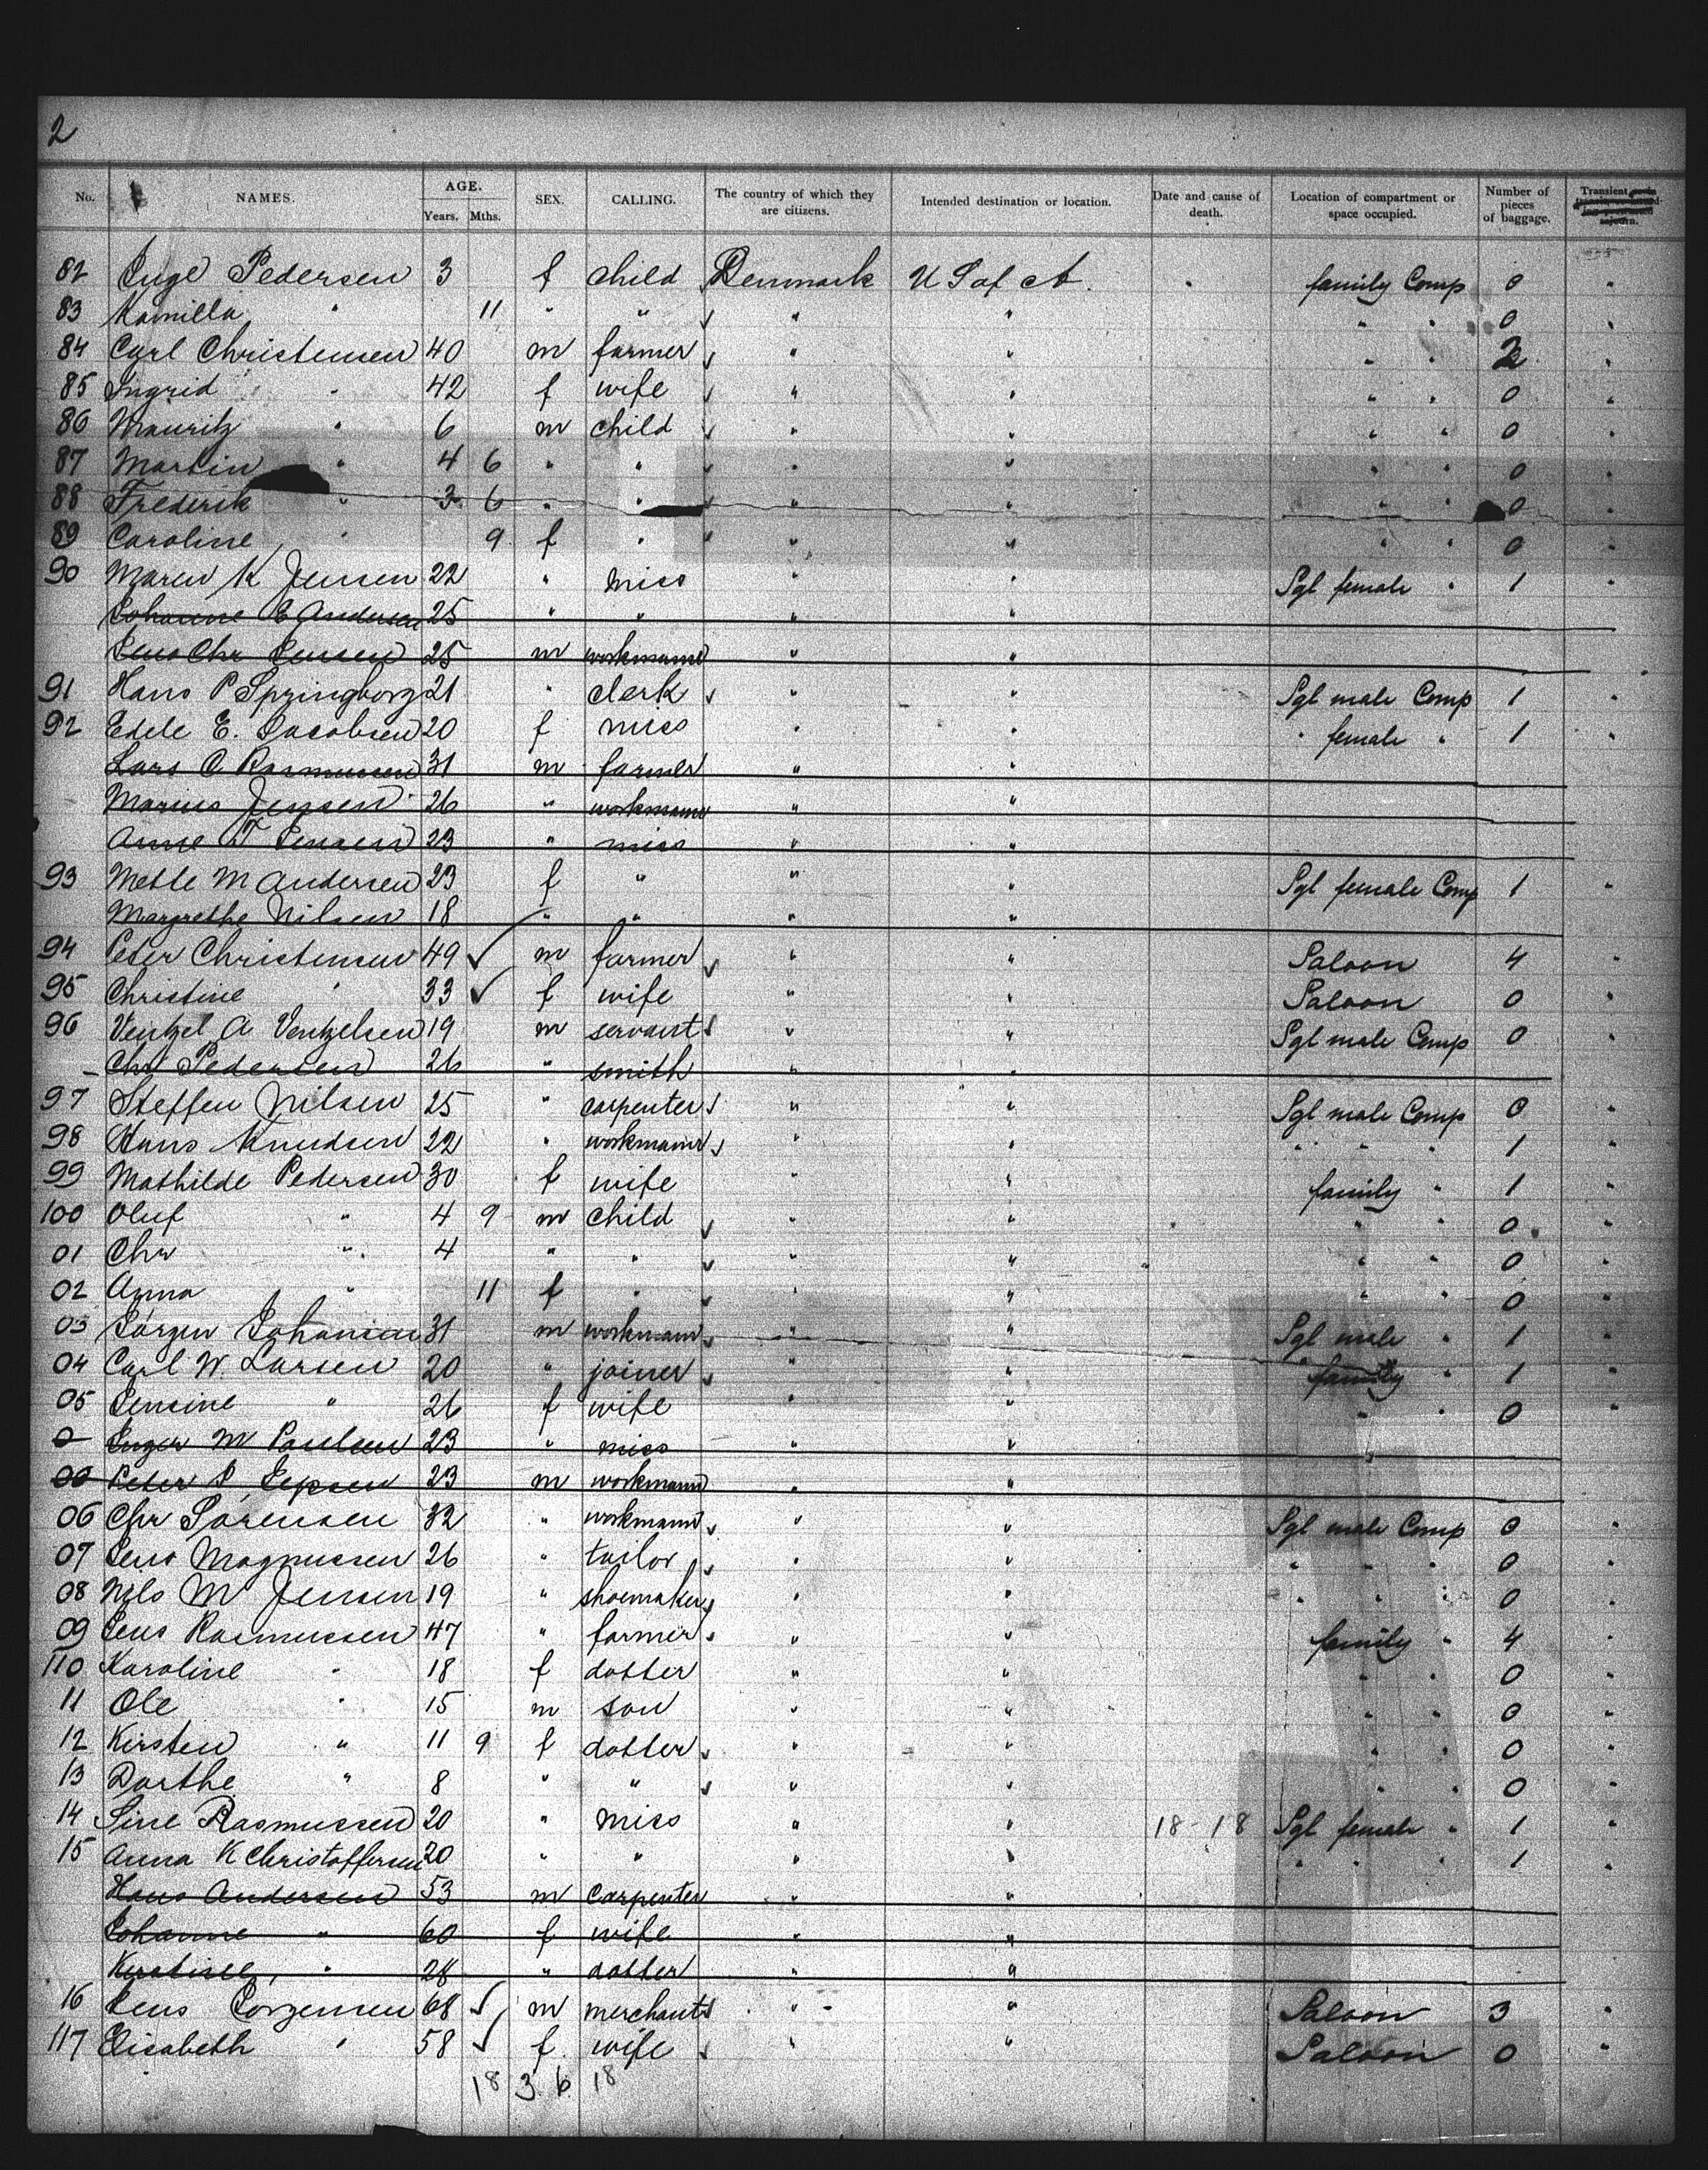 2
No. NAMES. AGE. Years. Mths. SEX. CALLING. The country of which they are citizens. Intended destination or location. Date and cause of death. Location of compartment or space occupied. Number of pieces of baggage. Transient
82 Inge Pedersen 3 f child Denmark U S of A. family Comp 0 "
83 Kamilla " 11 " " " " " " 0 "
84 Carl Christensen 40 m farmer " " " " 2 "
85 Ingrid " 42 f wife " " " " 0 "
86 Mauritz " 6 m child " " " " 0 "
87 Martin " 4 6 " " " " " " 0 "
88 Frederik " 3 6 " " " " " " 0 "
89 Caroline " 9 f " " " " " 0 "
90 Maren K Jensen 22 " miss " " Sgl female " 1 "
Johanne E Andersen 25 " " " "
Jens Chr Jensen 25 m workmann " "
91 Hans P Springborg 21 " clerk " " Sgl male Comp 1 "
92 Edele E. Jacobsen 20 f miss " " " female " 1 "
Lars C Rasmussen 31 m farmer " "
Marius Jensen 26 " workmann " "
Anne T Jensen 23 " miss " "
93 Mette M Andersen 23 f " " " Sgl female Comp 1 "
Margrethe Nilsen 18 " " " "
94 Peter Christensen 49 ✓ m farmer " " Saloon 4 "
95 Christine " 33 ✓ f wife " " Saloon 0 "
96 Ventzel A Ventzelsen 19 m servant " " Sgl male Comp 0 "
Chr Pedersen 26 " smith " "
97 Steffen Nilsen 25 " carpenter " " Sgl male Comp 0 "
98 Hans Knudsen 22 " workmann " " " " " 1 "
99 Mathilde Pedersen 30 f wife " " family " 1 "
100 Oluf " 4 9 m child " " " " 0 "
01 Chr " 4 " " " " " " 0 "
02 Anna " 11 f " " " " " 0 "
03 Jörgen Johansen 31 m workmann " " Sgl male " 1 "
04 Carl W. Larsen 20 " joiner " " " family " 1 "
05 Jensine " 26 f wife " " " " 0 "
Inger M Paulsen 23 " miss " "
Peter P Jepsen 23 m workmann " "
06 Chr Sörensen 32 " workmann " " Sgl male Comp 0 "
07 Jens Magnussen 26 " tailor " " " " " 0 "
08 Nils M Jensen 19 " shoemaker " " " " " 0 "
09 Jens Rasmussen 47 " farmer " " family " 4 "
110 Karoline " 18 f dotter " " " " 0 "
11 Ole " 15 m son " " " " 0 "
12 Kirsten " 11 9 f dotter " " " " 0 "
13 Dorthe " 8 " " " " " " 0 "
14 Sine Rasmussen 20 " miss " " 18-18 Sgl female " 1 "
15 Anna K Christoffersen 20 " " " " " " " 1 "
Hans Andersen 53 m carpenter " "
Johanne " 60 f wife " "
Kirstine " 28 " dotter " "
16 Jens Jörgensen 68 ✓ m merchant " " Saloon 3 "
117 Elisabeth " 58 ✓ f. wife " " Saloon 0 "
18 3. 6. 18